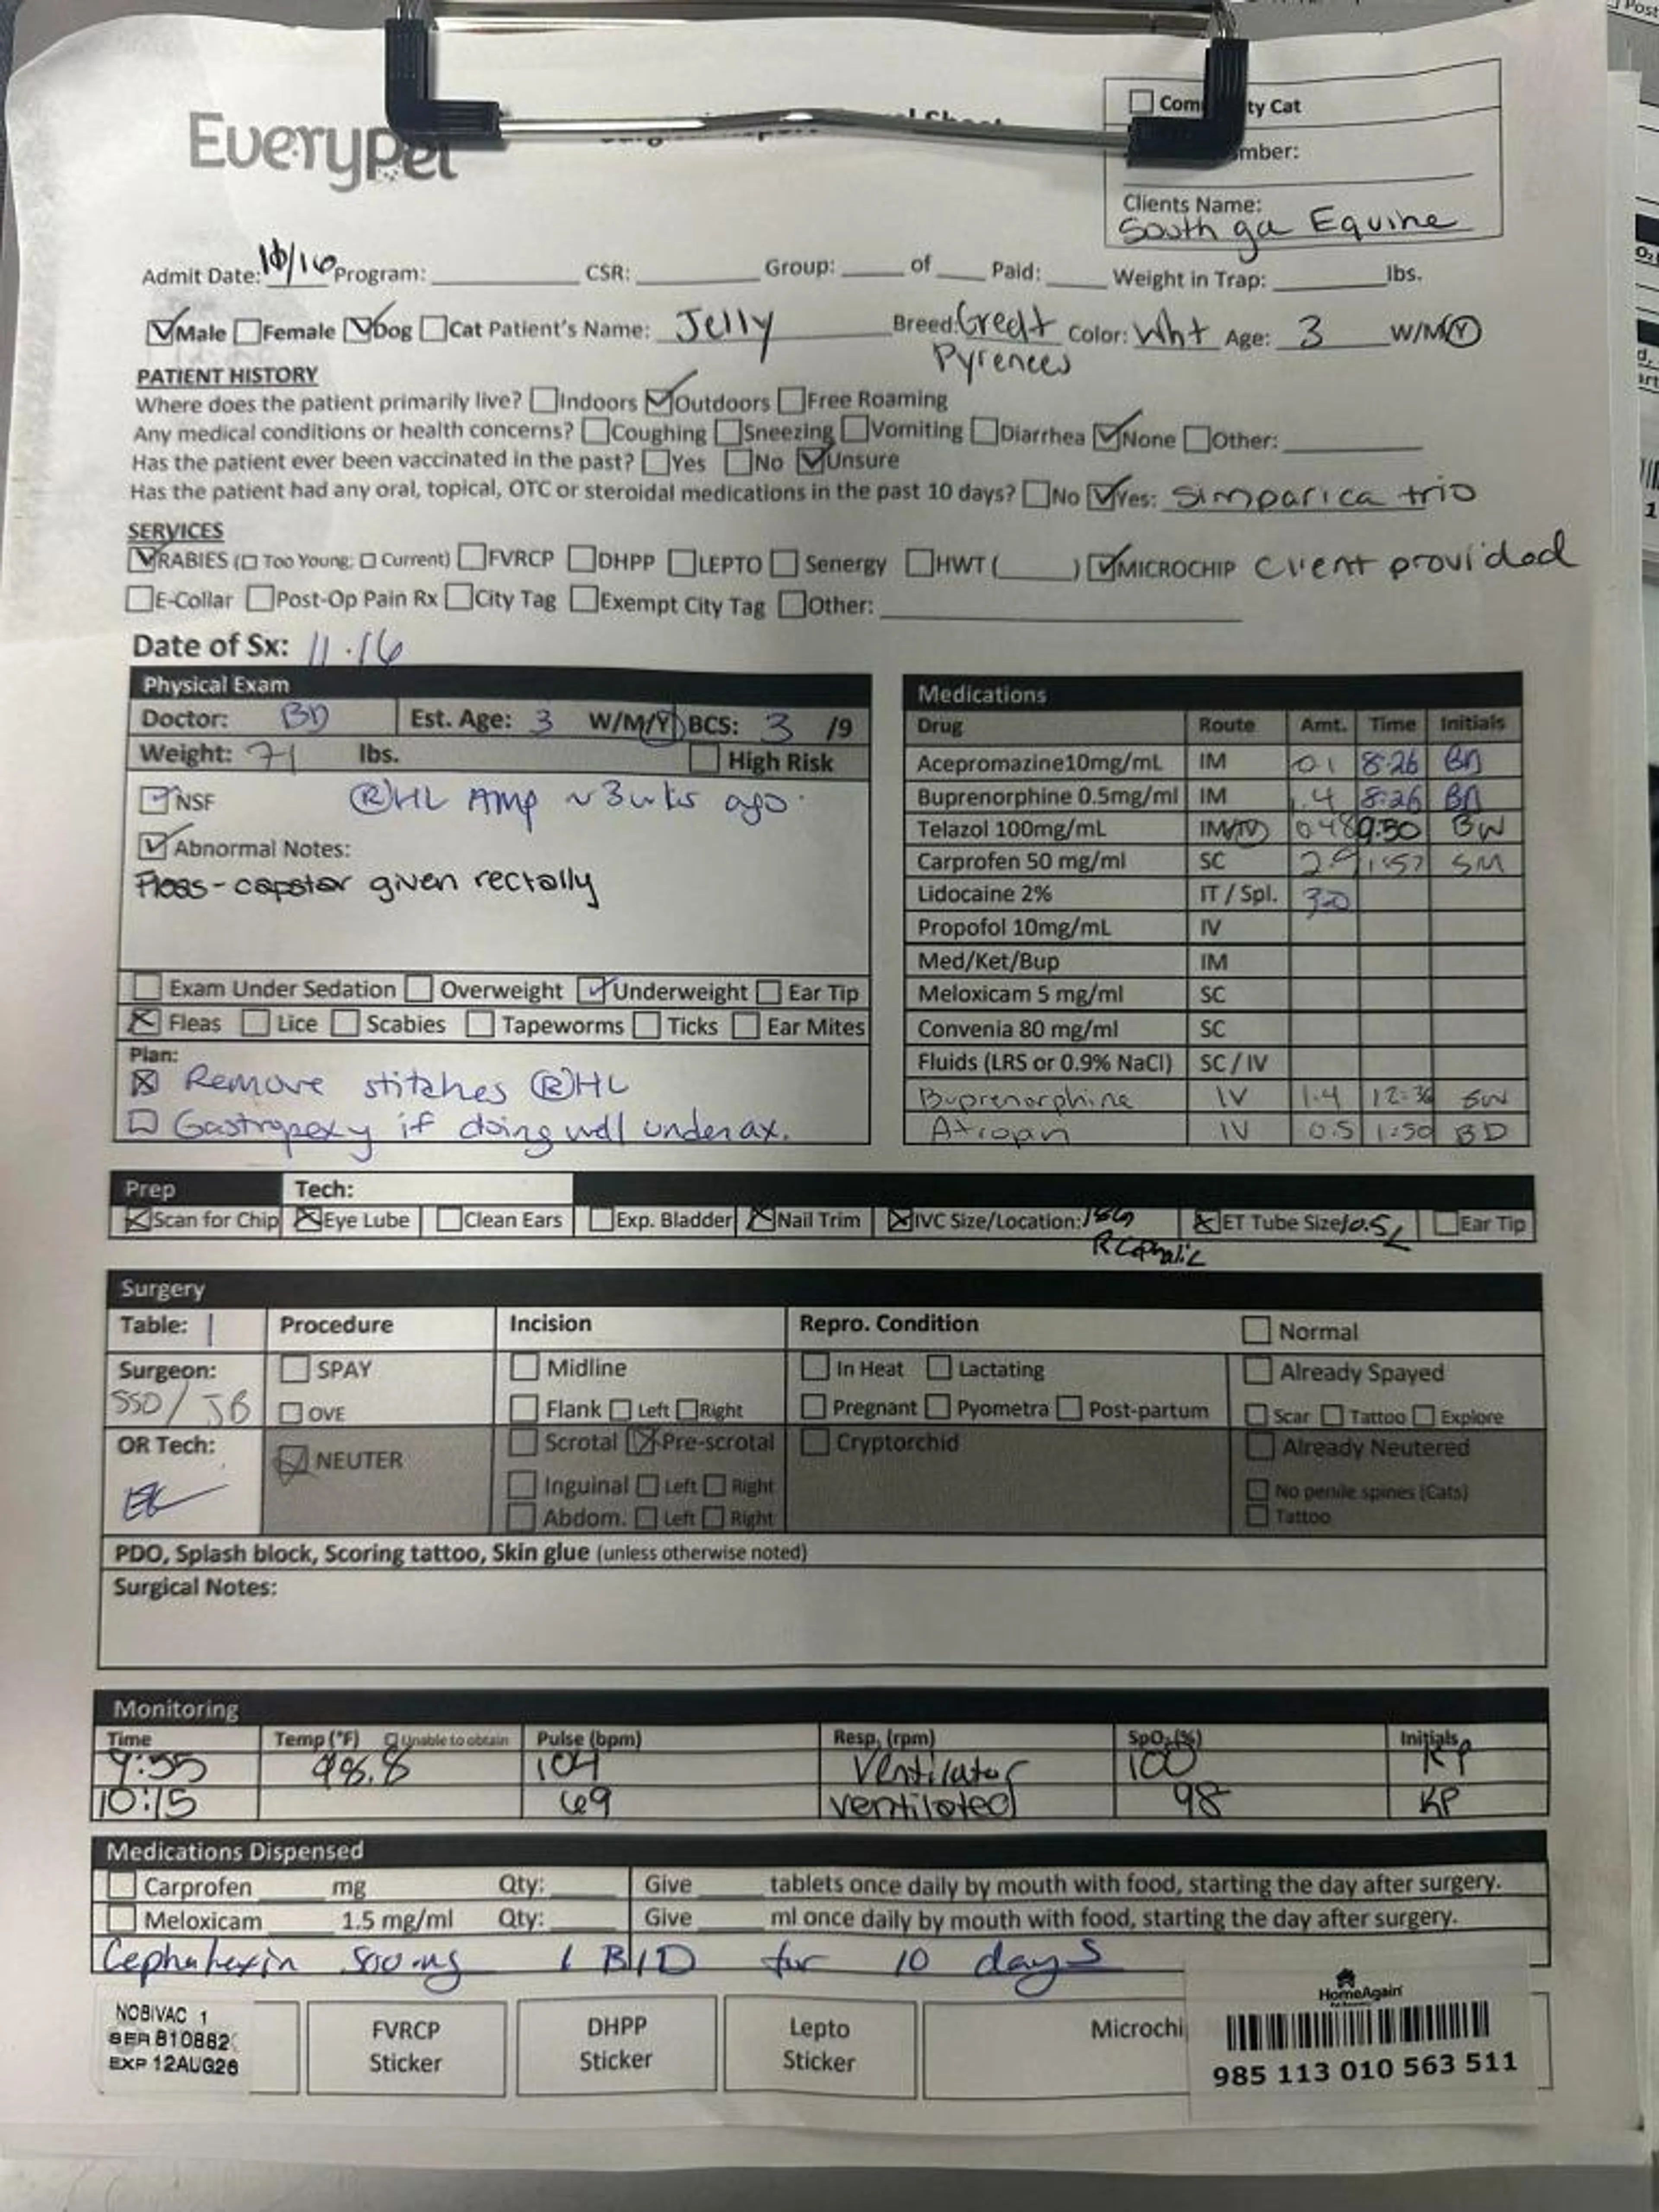 Everypet
☐ Com ty Cat
mber:
Clients Name:
South ga Equine
Admit Date: 10/16 Program: ____ CSR: ____ Group: ____ of ____ Paid: ____ Weight in Trap: ____ lbs.
☑ Male ☐ Female ☑ Dog ☐ Cat Patient's Name: Jelly Breed: Great Pyrenees Color: Wht Age: 3 W/M/Y
PATIENT HISTORY
Where does the patient primarily live? ☐ Indoors ☑ Outdoors ☐ Free Roaming
Any medical conditions or health concerns? ☐ Coughing ☐ Sneezing ☐ Vomiting ☐ Diarrhea ☑ None ☐ Other:
Has the patient ever been vaccinated in the past? ☐ Yes ☐ No ☑ Unsure
Has the patient had any oral, topical, OTC or steroidal medications in the past 10 days? ☐ No ☑ Yes: Simparica trio
SERVICES
☑ RABIES (☐ Too Young; ☐ Current) ☐ FVRCP ☐ DHPP ☐ LEPTO ☐ Senergy ☐ HWT (____) ☑ MICROCHIP Client provided
☐ E-Collar ☐ Post-Op Pain Rx ☐ City Tag ☐ Exempt City Tag ☐ Other:
Date of Sx: 11.16
Physical Exam
Doctor: BD Est. Age: 3 W/M/Y BCS: 3 /9
Weight: 71 lbs. ☐ High Risk
☐ NSF Ⓡ HL Amp ~ 3 wks ago.
☑ Abnormal Notes:
Fleas - capstar given rectally
☐ Exam Under Sedation ☐ Overweight ☑ Underweight ☐ Ear Tip
☒ Fleas ☐ Lice ☐ Scabies ☐ Tapeworms ☐ Ticks ☐ Ear Mites
Plan:
☒ Remove stitches Ⓡ HL
☐ Gastropexy if doing well under ax.
Medications
Drug Route Amt. Time Initials
Acepromazine 10mg/mL IM 0.1 8:26
Buprenorphine 0.5mg/ml IM 1.4 8:26
Telazol 100mg/mL IM/IV 0.48 9:50 BW
Carprofen 50 mg/ml SC 2.9 1:57 SM
Lidocaine 2% IT / Spl. 3.0
Propofol 10mg/mL IV
Med/Ket/Bup IM
Meloxicam 5 mg/ml SC
Convenia 80 mg/ml SC
Fluids (LRS or 0.9% NaCl) SC / IV
Buprenorphine IV 1.4 12:36
Atropan IV 0.5 1:50 BD
Prep Tech:
☒ Scan for Chip ☒ Eye Lube ☐ Clean Ears ☐ Exp. Bladder ☒ Nail Trim ☒ IVC Size/Location: 18G R Cephalic ☒ ET Tube Size 10.5 ☐ Ear Tip
Surgery
Table: 1 Procedure Incision Repro. Condition ☐ Normal
Surgeon: ☐ SPAY ☐ Midline ☐ In Heat ☐ Lactating ☐ Already Spayed
SSD / JB ☐ OVE ☐ Flank ☐ Left ☐ Right ☐ Pregnant ☐ Pyometra ☐ Post-partum ☐ Scar ☐ Tattoo ☐ Explore
OR Tech: ☑ NEUTER ☐ Scrotal ☒ Pre-scrotal ☐ Cryptorchid ☐ Already Neutered
☐ Inguinal ☐ Left ☐ Right ☐ No penile spines (Cats)
☐ Abdom. ☐ Left ☐ Right ☐ Tattoo
PDO, Splash block, Scoring tattoo, Skin glue (unless otherwise noted)
Surgical Notes:
Monitoring
Time Temp (°F) ☐ Unable to obtain Pulse (bpm) Resp. (rpm) SpO₂ (%) Initials
9:55 98.8 104 Ventilator 100 KP
10:15 69 ventilated 98 KP
Medications Dispensed
☐ Carprofen ____ mg Qty: ____ Give ____ tablets once daily by mouth with food, starting the day after surgery.
☐ Meloxicam 1.5 mg/ml Qty: ____ Give ____ ml once daily by mouth with food, starting the day after surgery.
Cephalexin 500 mg 1 BID for 10 days
NOBIVAC 1
SER 810882
EXP 12AUG26
FVRCP Sticker
DHPP Sticker
Lepto Sticker
Microchi
HomeAgain
985 113 010 563 511